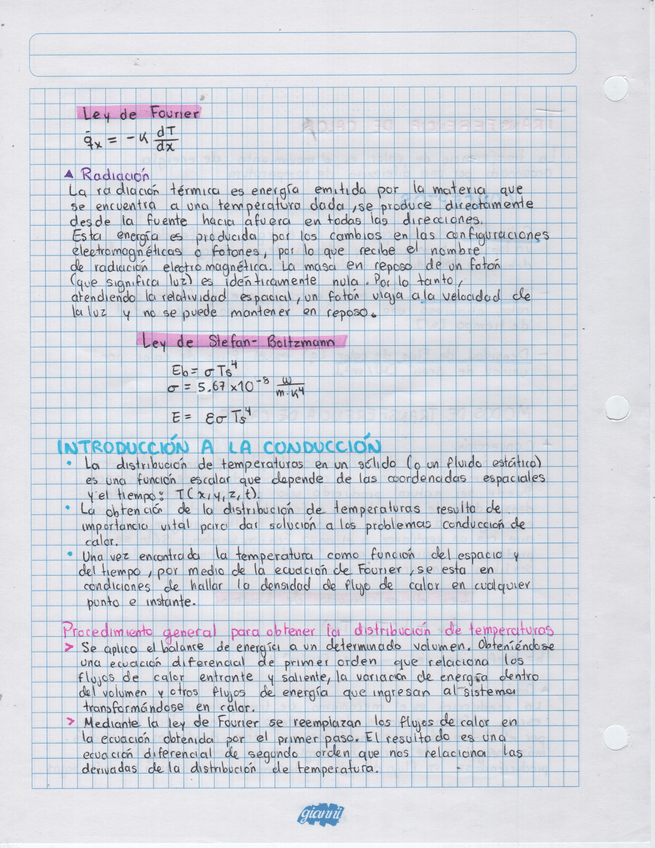 Ley de Fourier
q̇x = -K dT/dx
▲ Radiación
La radiación térmica es energía emitida por la materia que
se encuentra a una temperatura dada, se produce directamente
desde la fuente hacia afuera en todas las direcciones.
Esta energía es producida por los cambios en las configuraciones
electromagnéticas o fotones, por lo que recibe el nombre
de radiación electromagnética. La masa en reposo de un fotón
(que significa luz) es idénticamente nula. Por lo tanto,
atendiendo la relatividad espacial, un fotón viaja a la velocidad de
la luz y no se puede mantener en reposo.
Ley de Stefan-Boltzmann
Eb = σTs⁴
σ = 5.67 x10⁻⁸ w/m·K⁴
E = εσTs⁴
INTRODUCCIÓN A LA CONDUCCIÓN
• La distribución de temperaturas en un sólido (o un fluido estático)
es una función escalar que depende de las coordenadas espaciales
y el tiempo: T(x,y,z,t).
• La obtención de la distribución de temperaturas resulta de
importancia vital para dar solución a los problemas conducción de
calor.
• Una vez encontrada la temperatura como función del espacio y
del tiempo, por medio de la ecuación de Fourier, se esta en
condiciones de hallar la densidad de flujo de calor en cualquier
punto e instante.
Procedimiento general para obtener la distribución de temperaturas
> Se aplica el balance de energía a un determinado volumen. Obteniéndose
una ecuación diferencial de primer orden que relaciona los
flujos de calor entrante y saliente, la variación de energía dentro
del volumen y otros flujos de energía que ingresan al sistema
transformándose en calor.
> Mediante la ley de Fourier se reemplazan los flujos de calor en
la ecuación obtenida por el primer paso. El resultado es una
ecuación diferencial de segundo orden que nos relaciona las
derivadas de la distribución de temperatura.
gianni